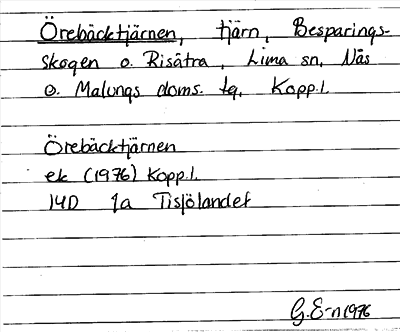 Örebäcktjärnen, tjärn, Besparings-
skogen o. Risätra, Lima sn, Nås
o. Malungs doms. tg, Kopp.l.
Örebäcktjärnen
ek (1976) Kopp.l.
14D 1a Tisjölandet
G.E-n 1976